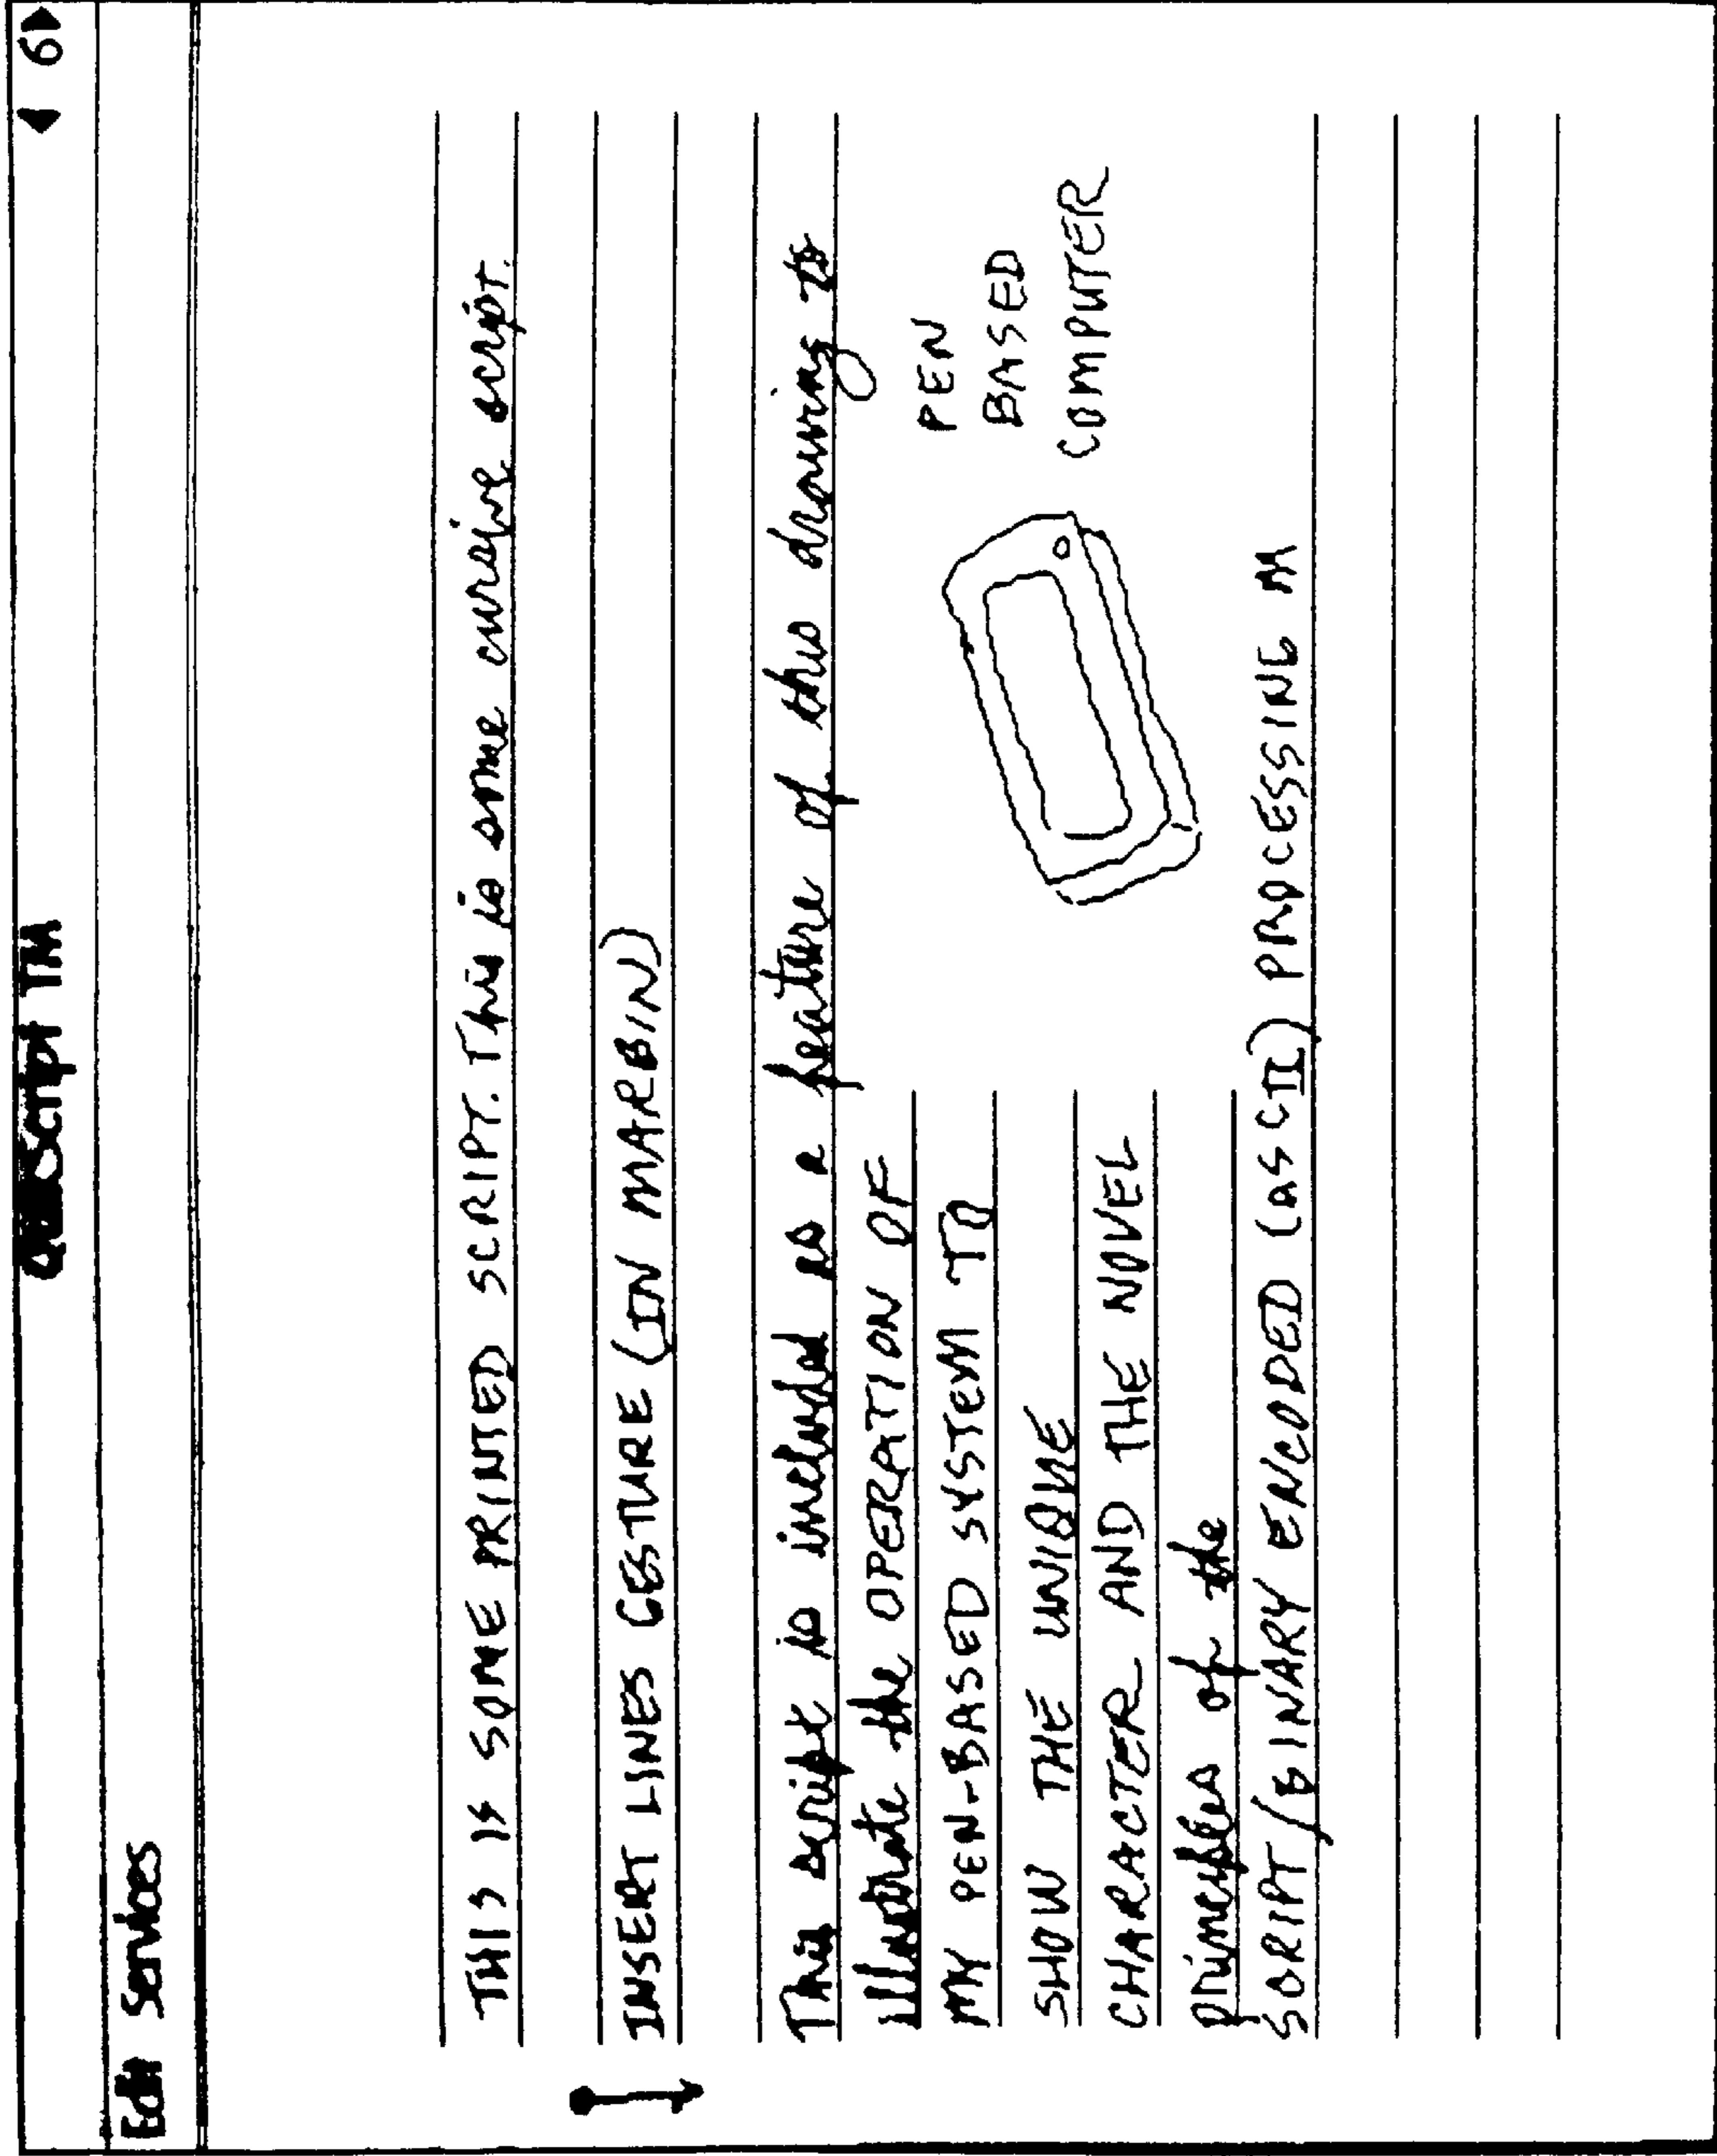 Script TM
6
Edit Services
THIS IS SOME PRINTED SCRIPT. This is some cursive script.
INSERT LINES GESTURE (IN MARBIN)
This script is included as a feature of this drawing to
illustrate the OPERATION OF
MY PEN-BASED SYSTEM TO
SHOW THE UNIQUE
CHARACTER AND THE NOVEL
principles of the
SCRIPT/BINARY ENCODED (ASCII) PROCESSING M
PEN
BASED
COMPUTER